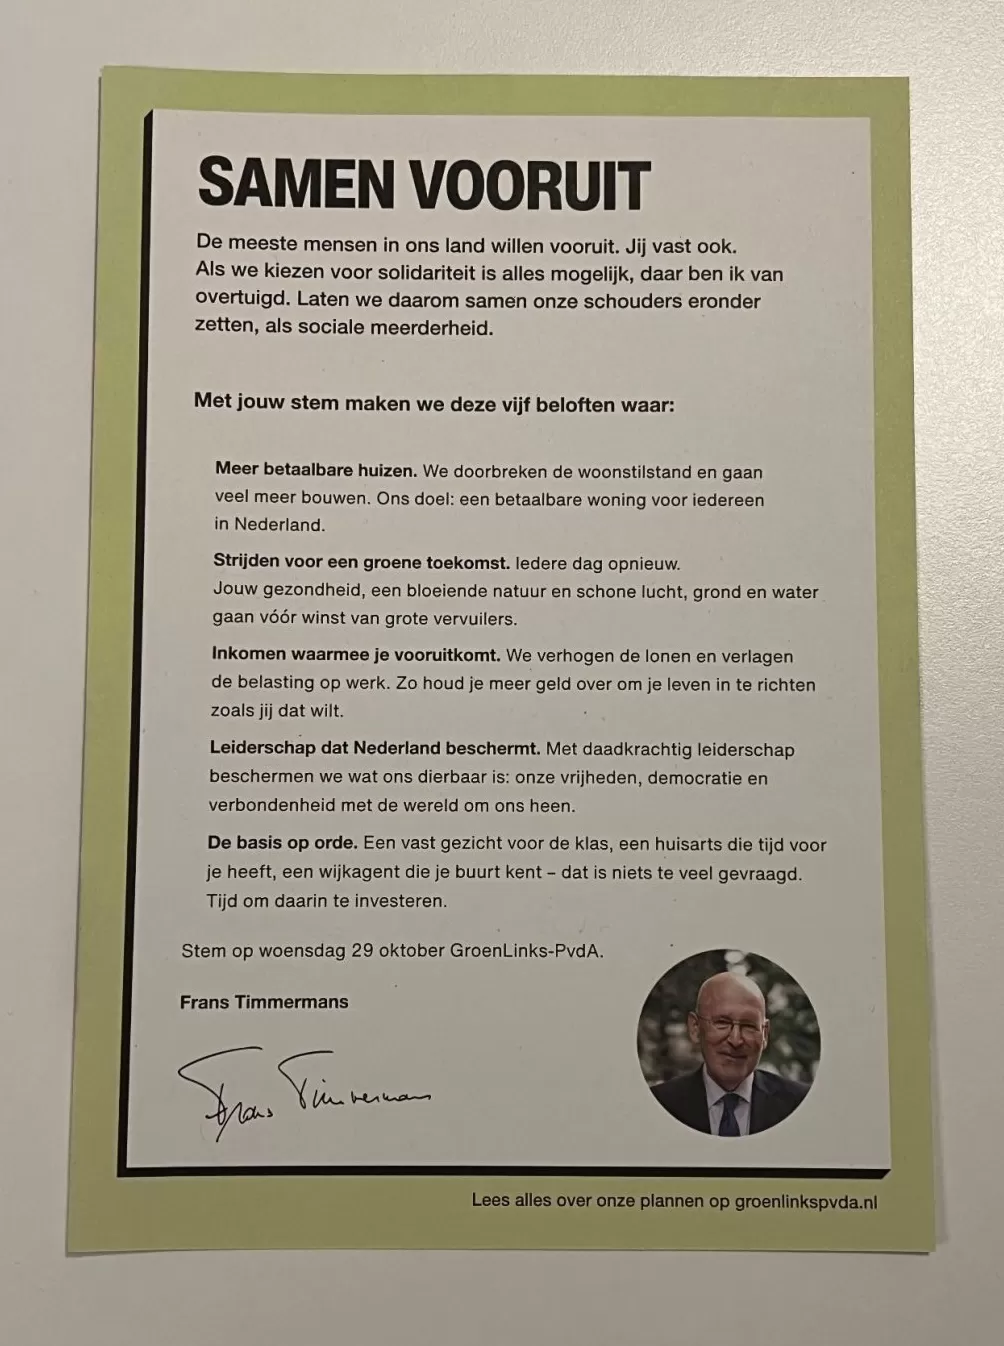 SAMEN VOORUIT
De meeste mensen in ons land willen vooruit. Jij vast ook.
Als we kiezen voor solidariteit is alles mogelijk, daar ben ik van
overtuigd. Laten we daarom samen onze schouders eronder
zetten, als sociale meerderheid.
Met jouw stem maken we deze vijf beloften waar:
Meer betaalbare huizen. We doorbreken de woonstilstand en gaan
veel meer bouwen. Ons doel: een betaalbare woning voor iedereen
in Nederland.
Strijden voor een groene toekomst. Iedere dag opnieuw.
Jouw gezondheid, een bloeiende natuur en schone lucht, grond en water
gaan vóór winst van grote vervuilers.
Inkomen waarmee je vooruitkomt. We verhogen de lonen en verlagen
de belasting op werk. Zo houd je meer geld over om je leven in te richten
zoals jij dat wilt.
Leiderschap dat Nederland beschermt. Met daadkrachtig leiderschap
beschermen we wat ons dierbaar is: onze vrijheden, democratie en
verbondenheid met de wereld om ons heen.
De basis op orde. Een vast gezicht voor de klas, een huisarts die tijd voor
je heeft, een wijkagent die je buurt kent – dat is niets te veel gevraagd.
Tijd om daarin te investeren.
Stem op woensdag 29 oktober GroenLinks-PvdA.
Frans Timmermans
Frans Timmermans
Lees alles over onze plannen op groenlinkspvda.nl